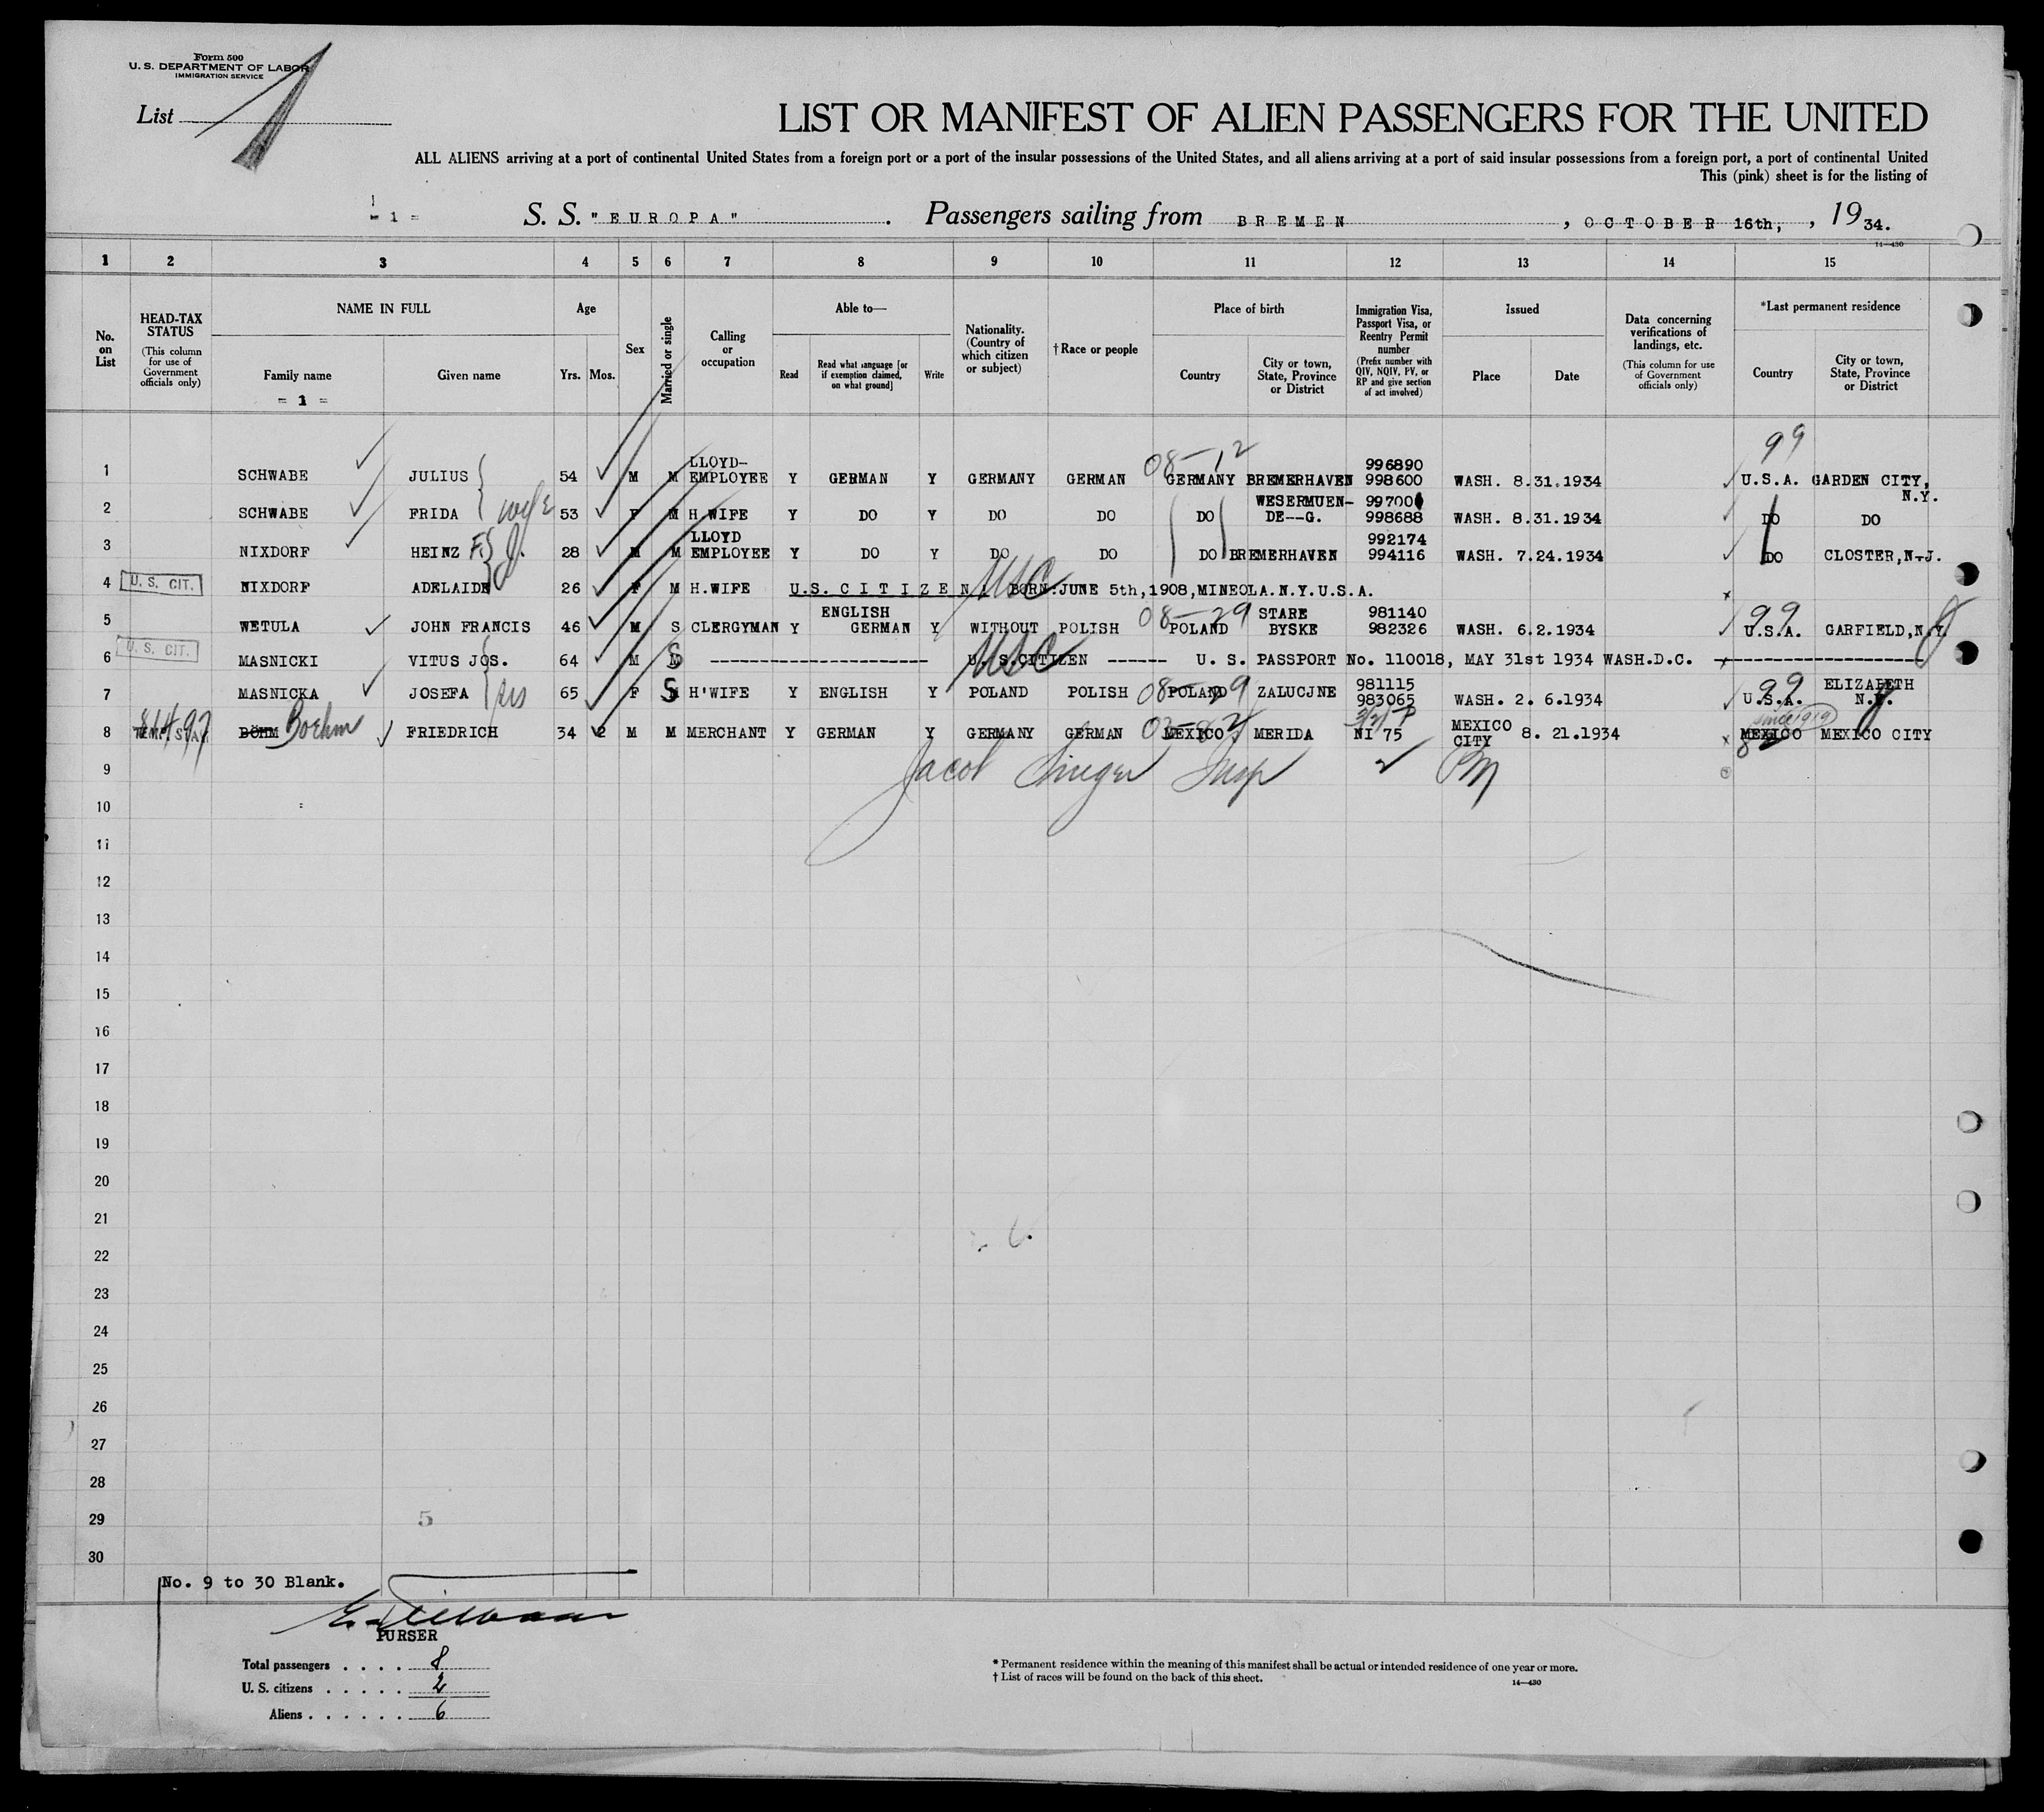 Form 500
U. S. DEPARTMENT OF LABOR
IMMIGRATION SERVICE
List 1
LIST OR MANIFEST OF ALIEN PASSENGERS FOR THE UNITED
ALL ALIENS arriving at a port of continental United States from a foreign port or a port of the insular possessions of the United States, and all aliens arriving at a port of said insular possessions from a foreign port, a port of continental United
This (pink) sheet is for the listing of
- 1 - S. S. "EUROPA" . Passengers sailing from BREMEN , OCTOBER 16th, , 19 34.
14—430
1 2 3 4 5 6 7 8 9 10 11 12 13 14 15
No. on List
HEAD-TAX STATUS (This column for use of Government officials only)
NAME IN FULL
Family name
= 1 =
Given name
Age
Yrs. Mos.
Sex
Married or single
Calling or occupation
Able to—
Read
Read what language [or if exemption claimed, on what ground]
Write
Nationality. (Country of which citizen or subject)
† Race or people
Place of birth
Country
City or town, State, Province or District
Immigration Visa, Passport Visa, or Reentry Permit number (Prefix number with QIV, NQIV, PV, or RP and give section of act involved)
Issued
Place
Date
Data concerning verifications of landings, etc. (This column for use of Government officials only)
*Last permanent residence
Country
City or town, State, Province or District
08-12 99
1 SCHWABE JULIUS 54 M M LLOYD-EMPLOYEE Y GERMAN Y GERMANY GERMAN GERMANY BREMERHAVEN 996890 998600 WASH. 8.31.1934 U.S.A. GARDEN CITY, N.Y.
wife
2 SCHWABE FRIDA 53 F M H WIFE Y DO Y DO DO DO WESERMUEN-DE--G. 99700 998688 WASH. 8.31.1934 DO DO
3 NIXDORF HEINZ F. 28 M M LLOYD EMPLOYEE Y DO Y DO DO DO BREMERHAVEN 992174 994116 WASH. 7.24.1934 DO CLOSTER,N.J.
4 U. S. CIT. NIXDORF ADELAIDE 26 F M H.WIFE U.S. CITIZEN USC BORN:JUNE 5th,1908,MINEOLA.N.Y.U.S.A.
08-29 99
5 WETULA JOHN FRANCIS 46 M S CLERGYMAN Y ENGLISH GERMAN Y WITHOUT POLISH POLAND STARE BYSKE 981140 982326 WASH. 6.2.1934 U.S.A. GARFIELD,N.Y.
6 U. S. CIT. MASNICKI VITUS JOS. 64 M S ---------------------- U. S.CITIZEN USC ------ U. S. PASSPORT No. 110018, MAY 31st 1934 WASH.D.C. ----------------------
08-29 99
7 MASNICKA JOSEFA 65 F S H'WIFE Y ENGLISH Y POLAND POLISH POLAND ZALUCJNE 981115 983065 WASH. 2. 6.1934 U.S.A. ELIZABETH
since 1919
8 BÖHM Boehm FRIEDRICH 34 2 M M MERCHANT Y GERMAN Y GERMANY GERMAN MEXICO MERIDA NI 75 MEXICO CITY 8. 21.1934 MEXICO MEXICO CITY
9 Jacob Singer Insp
10
11
12
13
14
15
16
17
18
19
20
21
22
23
24
25
26
27
28
29
5
30
No. 9 to 30 Blank.
PURSER
Total passengers . . . . 8
U. S. citizens . . . . . 2
Aliens . . . . . . 6
* Permanent residence within the meaning of this manifest shall be actual or intended residence of one year or more.
† List of races will be found on the back of this sheet.
14—430